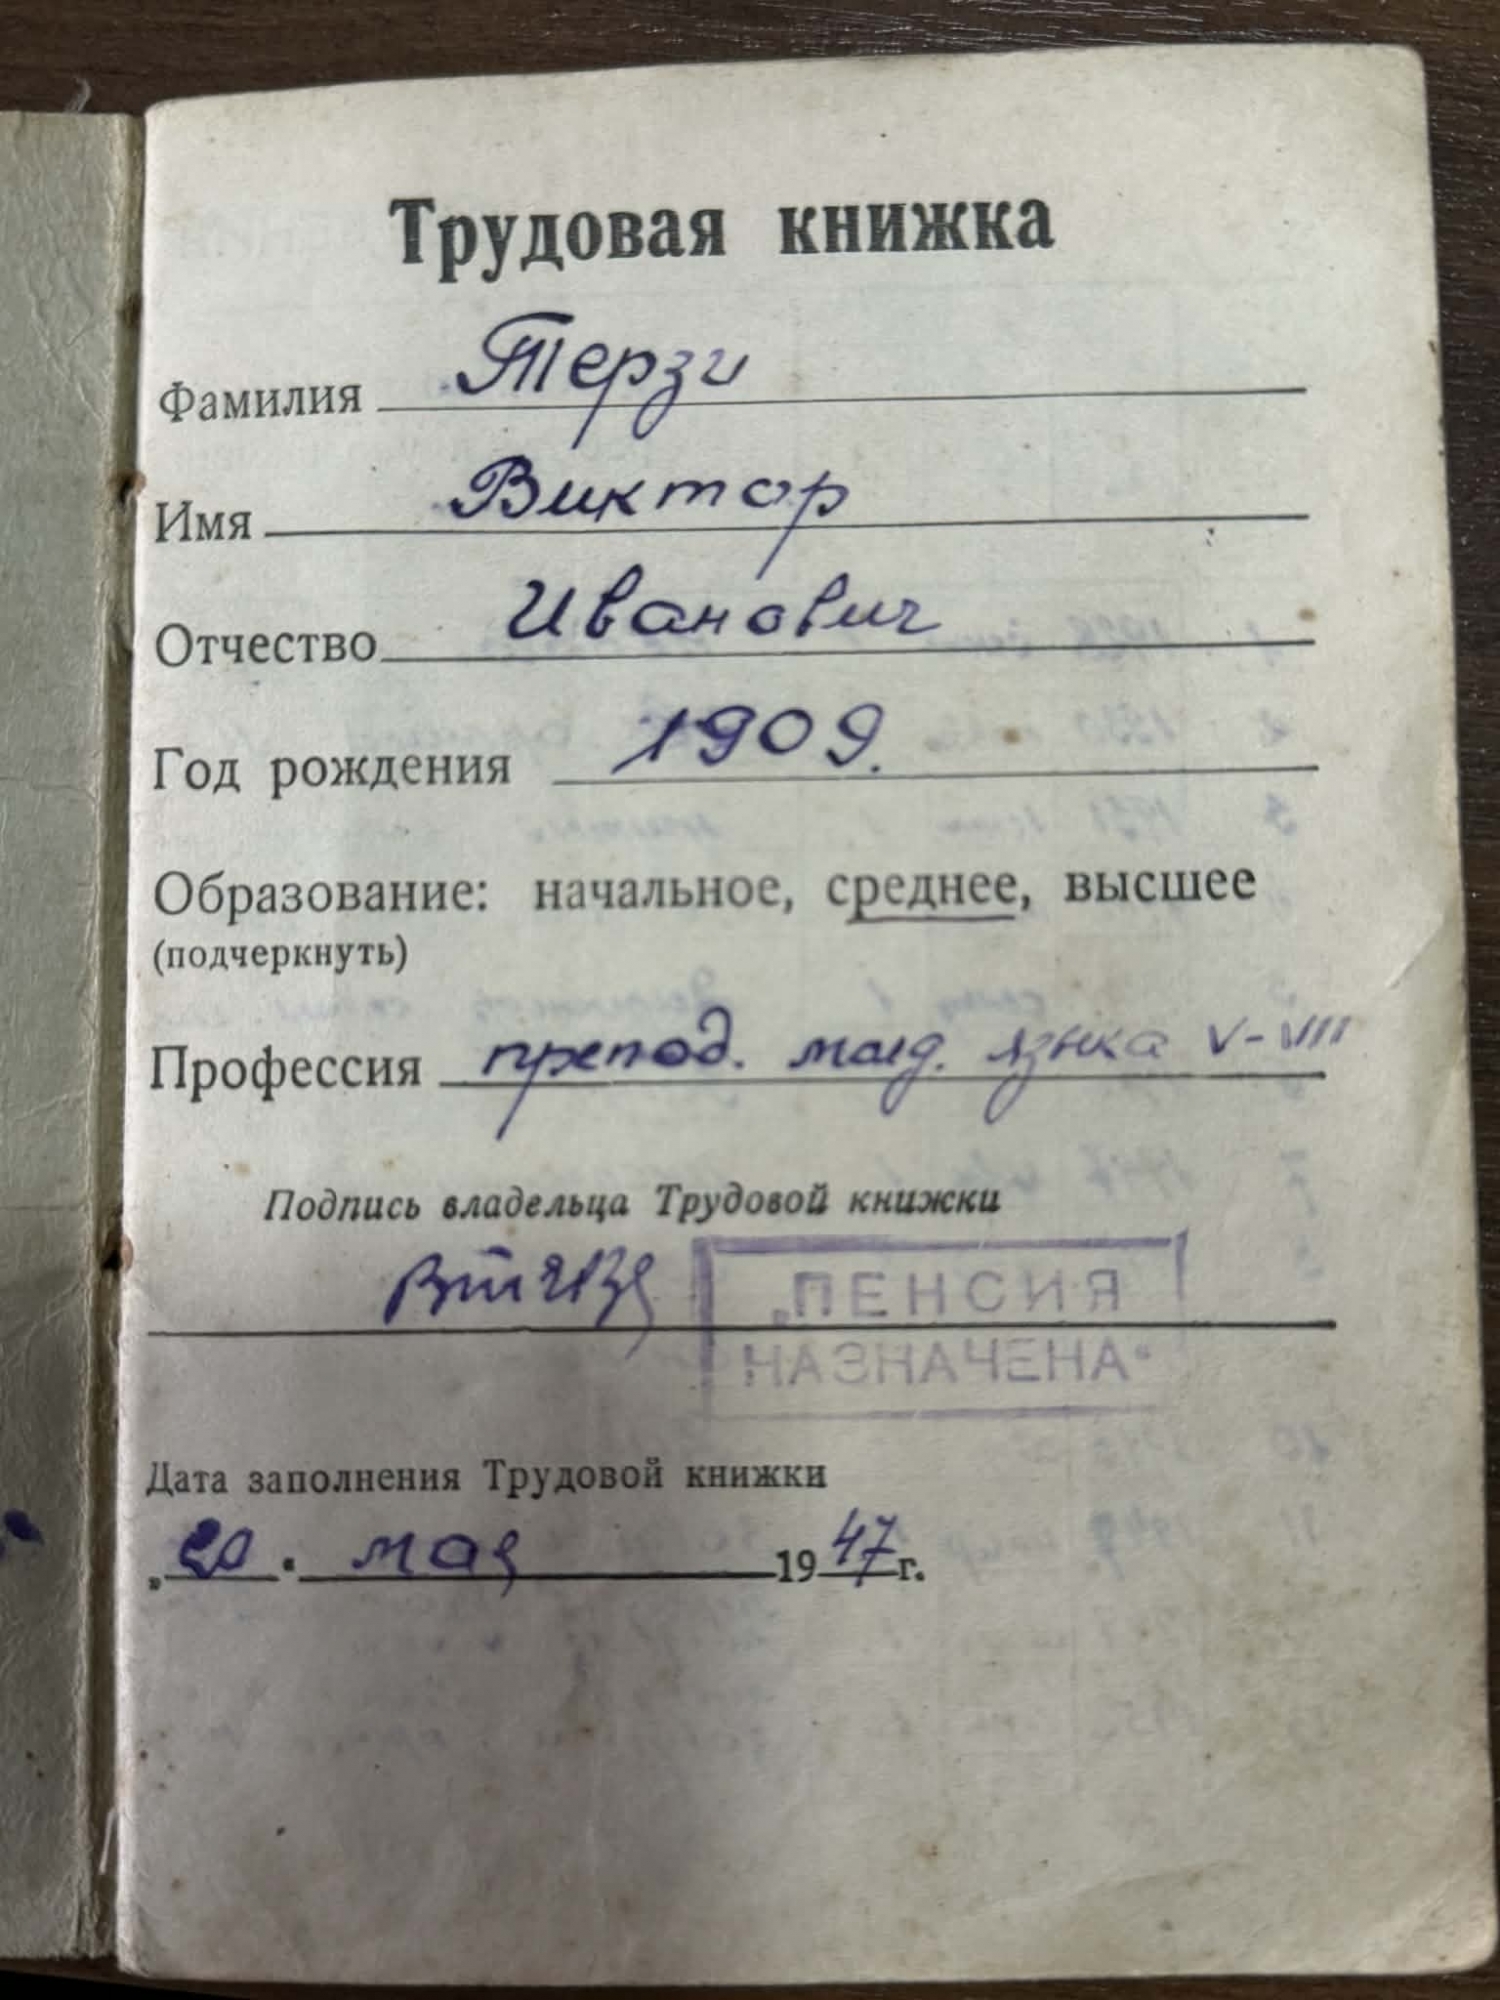 Трудовая книжка
Фамилия Терзи
Имя Виктор
Отчество Иванович
Год рождения 1909.
Образование: начальное, среднее, высшее
(подчеркнуть)
Профессия препод. молд. языка V-VIII
Подпись владельца Трудовой книжки
„ПЕНСИЯ
НАЗНАЧЕНА“
Дата заполнения Трудовой книжки
„20“ мая 1947 г.